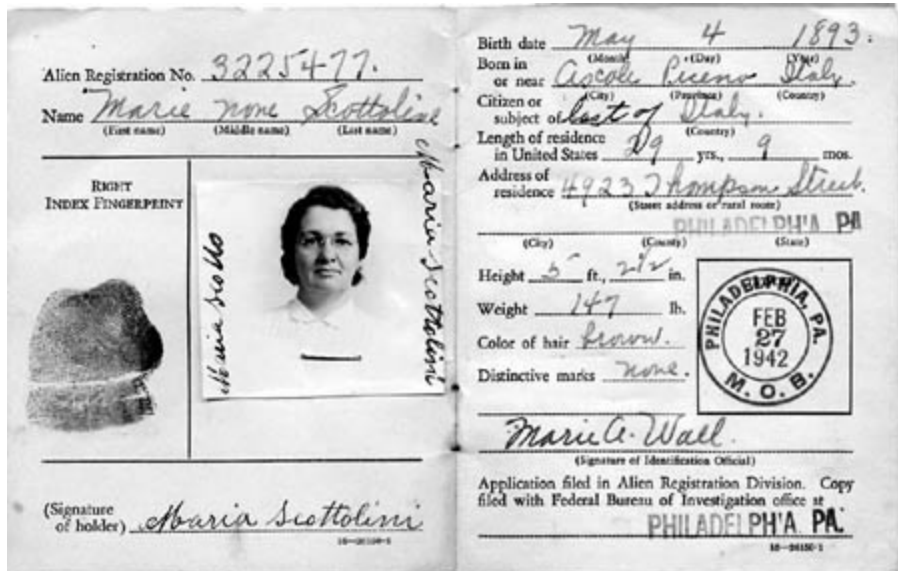 Alien Registration No. 3225477.
Name Marie none Scottoline
(First name) (Middle name) (Last name)
RIGHT
INDEX FINGERPRINT
Maria Scotto
Maria Scottolini
(Signature
of holder) Maria Scottolini
16—26150-1
Birth date May 4 1893.
(Month) (Day) (Year)
Born in
or near Ascole Piceno Italy.
(City) (Province) (Country)
Citizen or
subject of last of Italy.
(Country)
Length of residence
in United States 29 yrs., 9 mos.
Address of
residence 4923 Thompson Street.
(Street address or rural route)
PHILADELPH'A PA
(City) (County) (State)
Height 5 ft., 2 1/2 in.
Weight 147 lb.
Color of hair brown.
Distinctive marks none.
PHILADELPHIA, PA.
FEB
27
1942
M.O.B.
Marie A. Wall.
(Signature of Identification Official)
Application filed in Alien Registration Division. Copy
filed with Federal Bureau of Investigation office at
PHILADELPH'A PA.
16—26150-1